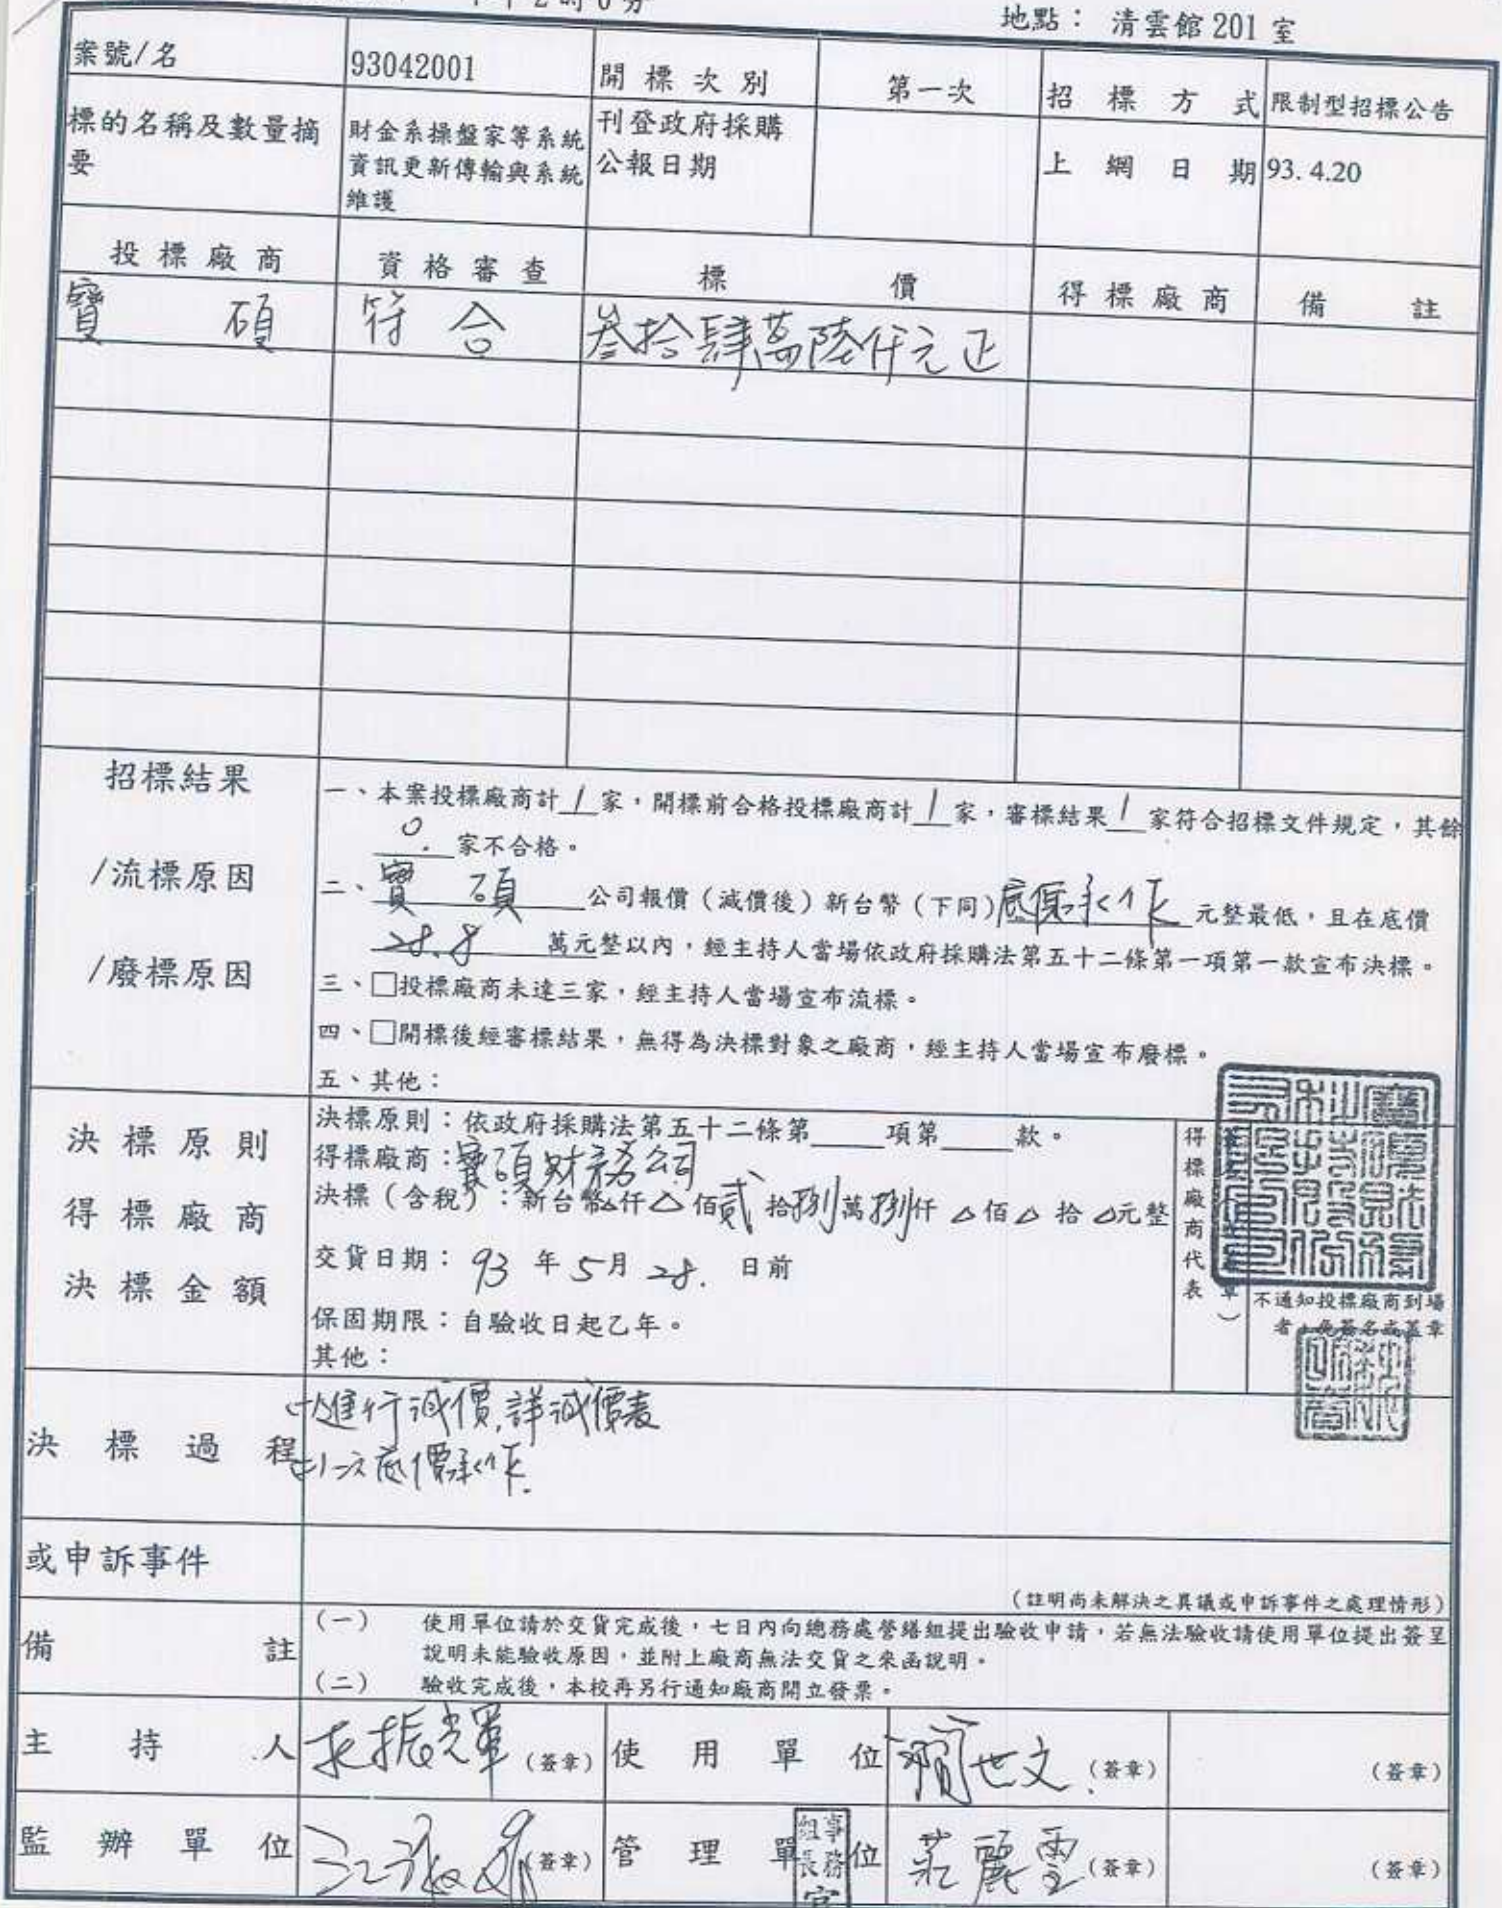 2時0分
地點： 清雲館201室
案號/名 93042001 開標次別 第一次 招標方式 限制型招標公告
標的名稱及數量摘要 財金系操盤家等系統資訊更新傳輸與系統維護 刊登政府採購公報日期 上網日期 93. 4.20
投標廠商 資格審查 標價 得標廠商 備註
寶碩 符合 叁拾肆萬陸仟元正
招標結果
/流標原因
/廢標原因
一、本案投標廠商計1家，開標前合格投標廠商計1家，審標結果1家符合招標文件規定，其餘
0.家不合格。
二、寶碩公司報價（減價後）新台幣（下同）底價承作元整最低，且在底價
28.8萬元整以內，經主持人當場依政府採購法第五十二條第一項第一款宣布決標。
三、□投標廠商未達三家，經主持人當場宣布流標。
四、□開標後經審標結果，無得為決標對象之廠商，經主持人當場宣布廢標。
五、其他：
決標原則
得標廠商
決標金額
決標原則：依政府採購法第五十二條第____項第____款。
得標廠商：寶碩財務公司
決標（含稅）：新台幣△仟△佰貳拾捌萬捌仟△佰△拾△元整
交貨日期：93年5月28.日前
保固期限：自驗收日起乙年。
其他：
得標廠商代表
章）
不通知投標廠商到場
者，免簽名或蓋章
決標過程
進行減價,詳減價表
次底價承作.
或申訴事件
（註明尚未解決之異議或申訴事件之處理情形）
備註
（一） 使用單位請於交貨完成後，七日內向總務處營繕組提出驗收申請，若無法驗收請使用單位提出簽呈
說明未能驗收原因，並附上廠商無法交貨之來函說明。
（二） 驗收完成後，本校再另行通知廠商開立發票。
主持人 振輝（簽章） 使用單位 簡世文（簽章） （簽章）
監辦單位 江淑（簽章） 管理單位 事務組長 莊麗雪（簽章） （簽章）